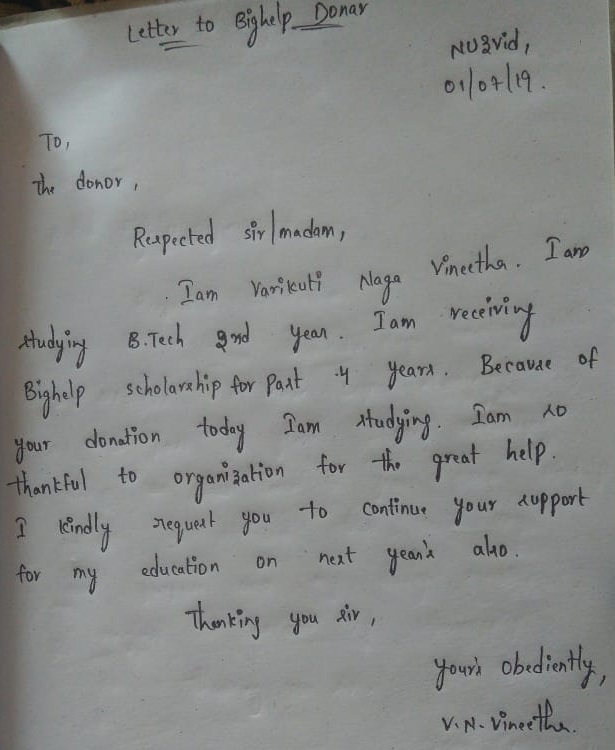 Letter to Bighelp Donar
NUzvid,
01/07/19.
To,
The donor,
Respected sir/madam,
Iam Varikuti Naga Vineetha. Iam
studying B.Tech 2nd year. Iam receiving
Bighelp scholarship for Past 4 years. Because of
your donation today Iam studying. Iam so
thankful to organization for the great help.
I kindly request you to continue your support
for my education on next year's also.
Thanking you sir,
your's obediently,
V.N.Vineetha.